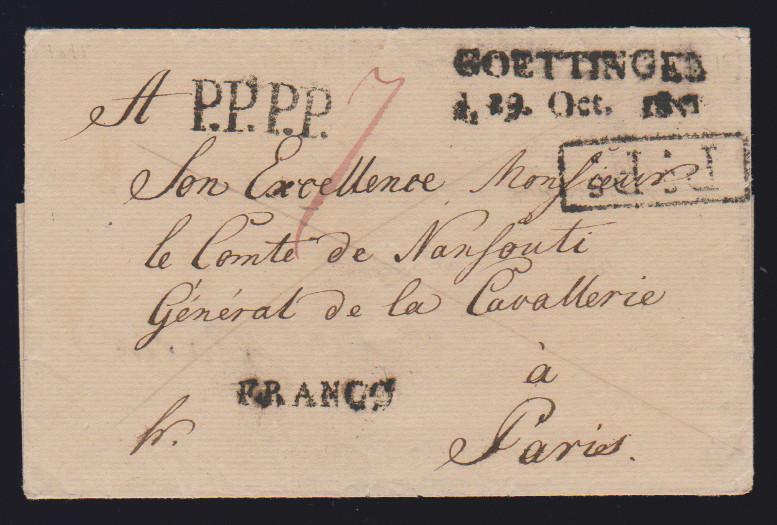 GOETTINGEN
d, 29. Oct.
A P.P.P.P. 7
Son Excellence Monsieur
le Comte de Nansouti
Général de la Cavallerie
à
FRANCO
fr. Paris.